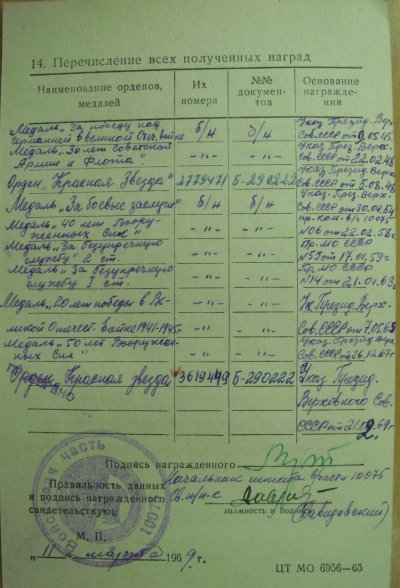 14. Перечисление всех полученных наград
Наименование орденов, медалей
Их номера
№№ документов
Основание награждения
Медаль „За победу над б/н б/н Указ Презид. Вер.
Германией в Великой Отеч. войне Сов. СССР от 9.05.45
Медаль „30 лет Советской -"- -"- Указ Презид. Верх.
Армии и Флота" Сов. СССР от 22.02.48
Орден „Красная Звезда" 2779471 Б-290222 Указ Презид. Верх. Сов. СССР от 5.08.48
Медаль „За боевые заслуги" б/н б/н Указ. През. Верх. Сов. СССР от 30.04.54
Медаль „40 лет Воору- -"- -"- пр. ком. в/ч 10075
женных Сил" №06 от 22.02.58г.
Медаль „За безупречную -"- -"- Пр. МО СССР
службу" 2 ст. от 17.01.59г
Медаль „За безупречную -"- -"- Пр. МО СССР
службу" I ст. №14 от 21.01.63г
Медаль „20 лет победы в Ве- -"- -"- Ук. Презид. Верх.
ликой Отечест. войне 1941-1945г. Сов. СССР от 7.05.65
Медаль „50 лет Вооружен- -"- -"- Указ. Презид. Верх
ных Сил" Сов. СССР от 26.12.67г
Орден „Красная звезда" 3619449 Б-290222 Указ Презид.
Верховного Сов.
СССР от 21.02.69г
Подпись награжденного
Правильность данных и подпись награжденного свидетельствую:
Начальник штаба в части 10075
должность и подпись
М. П.
Войсковая часть
„11" марта 1969г.
ЦТ МО 6956—65